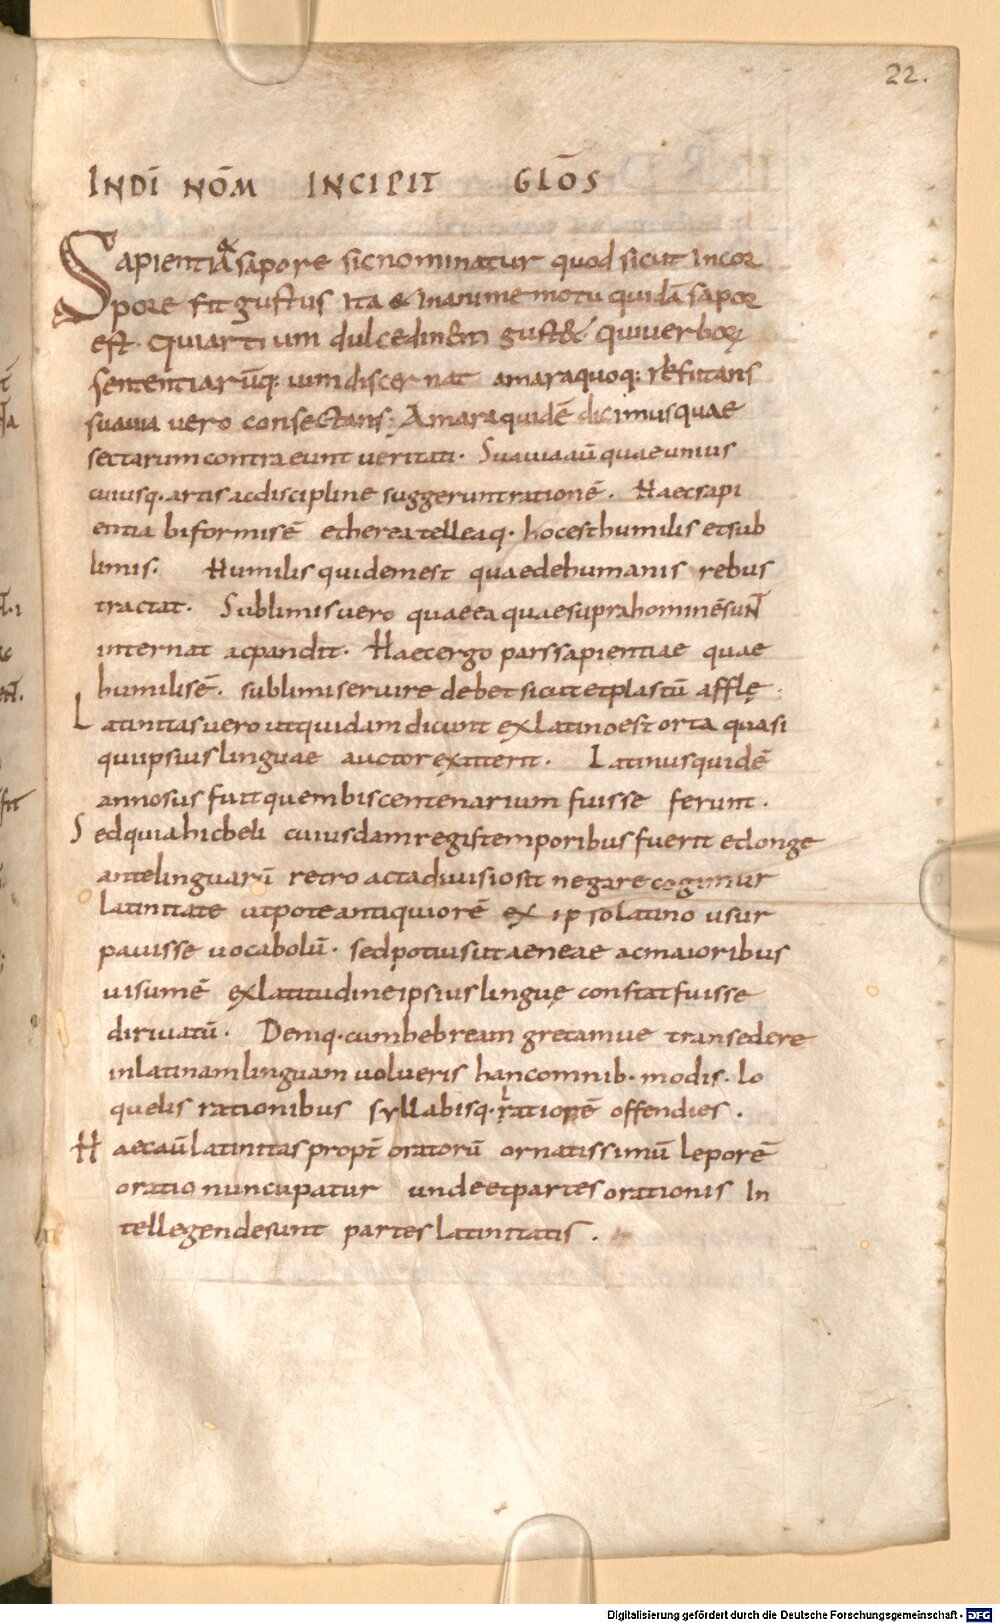 22.
INDI NŌM INCIPIT GLŌS
Sapientia a sapore sic nominatur quod sicut incor
pore fit gustus ita & in anime motu quidā sapor
est. qui artium dulcedinem gust& qui verborꝝ
sententiarūq: uim discernat amara quoq: refutans
suauia vero consectans; Amara quidē dicimus quae
sectarum contraeunt veritati. Suauia aū quae unius
cuiusq. artis ac discipline suggerunt rationē. Haec sapi
entia biformis ē etherea telleaq. hoc est humilis et sub
limis. Humilis quidem est quae de humanis rebus
tractat. Sublimis vero quae ea quae supra hominē sunt
internat ac pandit. Haec ergo pars sapientiae quae
humilis ē. sublimi seruire debet sicut et plastū afflę.
Latinitas vero ut quidam dicunt ex latino est orta quasi
qui ipsius linguae auctor extiterit. Latinus quidē
annosus fuit quem bis centenarium fuisse ferunt.
Sed quia hic beli cuiusdam regis temporibus fuerit et longe
ante linguarū retro acta diuisio sit negare cogimur
latinitate utpote antiquiorē ex ipso latino usur
pauisse vocabolū. sed potius ut aeneae ac maioribus
uisum ē ex latitudine ipsius linguę constat fuisse
diriuatū. Deniq. cum hebream grecam ue transedere
in latinam linguam volueris hanc omnib. modis. lo
quelis rationibus syllabisq. ratiorē offendies.
Haec aū latinitas propt̄ oratorū ornatissimū leporē
oratio nuncupatur unde et partes orationis in
tellegende sunt partes latinitatis.
Digitalisierung gefördert durch die Deutsche Forschungsgemeinschaft - DFG